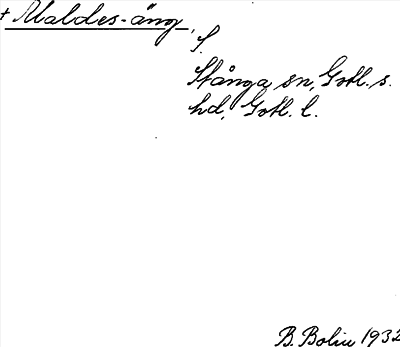 + Maldes-äng,
S.
Stånga sn, Gotl. s.
hd, Gotl. l.
B. Bolin 1932